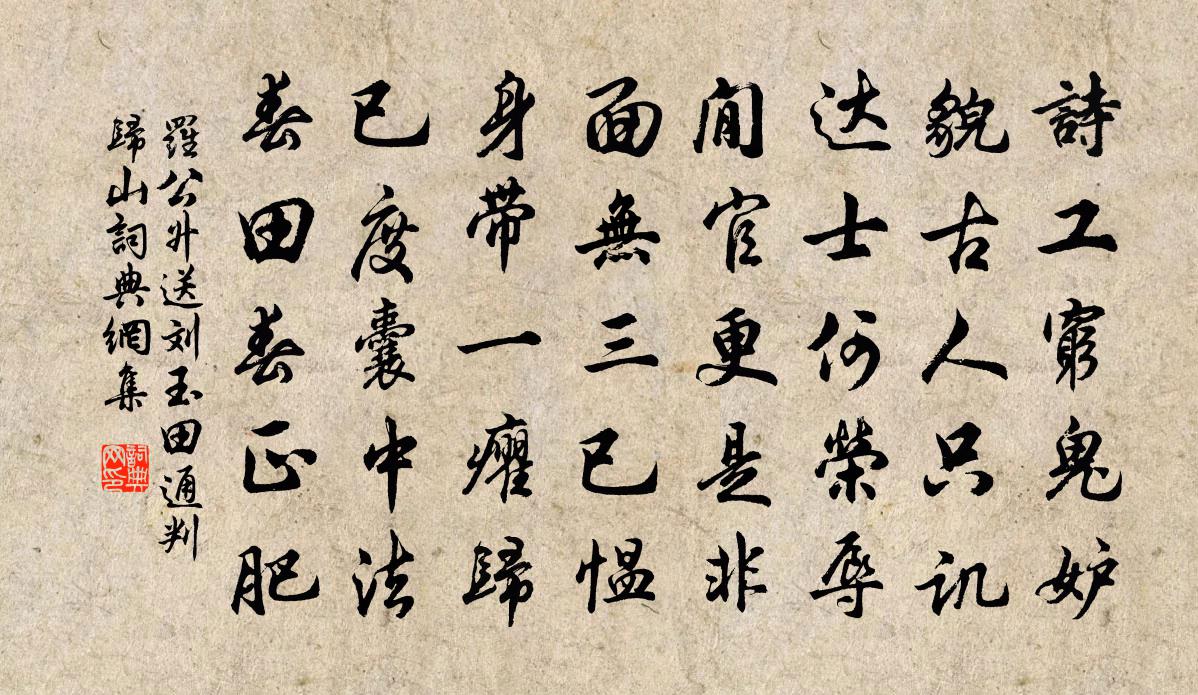 詩工窮鬼妒
貌古人只譏
达士何榮辱
閒官更是非
面無三已愠
身帶一癯歸
已度囊中法
春田春正肥
羅公升送刘玉田通判
歸山詞典網集
詞典网印